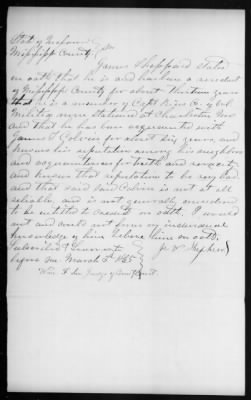 State of Missouri
Mississippi County } ss
James Sheppard States
on oath that he is and has been a resident
of Mississippi County for about thirteen years
that he is a member of Capt Co of
Militia now stationed at Charleston Mo
and that he has been acquainted with
James Colvin for about six years, and
knows his reputation among his neighbors
and acquaintances for truth and veracity
and knows that reputation to be very bad
and that said Colvin is not at all
reliable, and is not generally considered
to be entitled to credit on oath. I would
not and could not from my individual
knowledge of him believe him on oath.
Subscribed & Sworn to
before me March 3d 1865
Judge of County Court